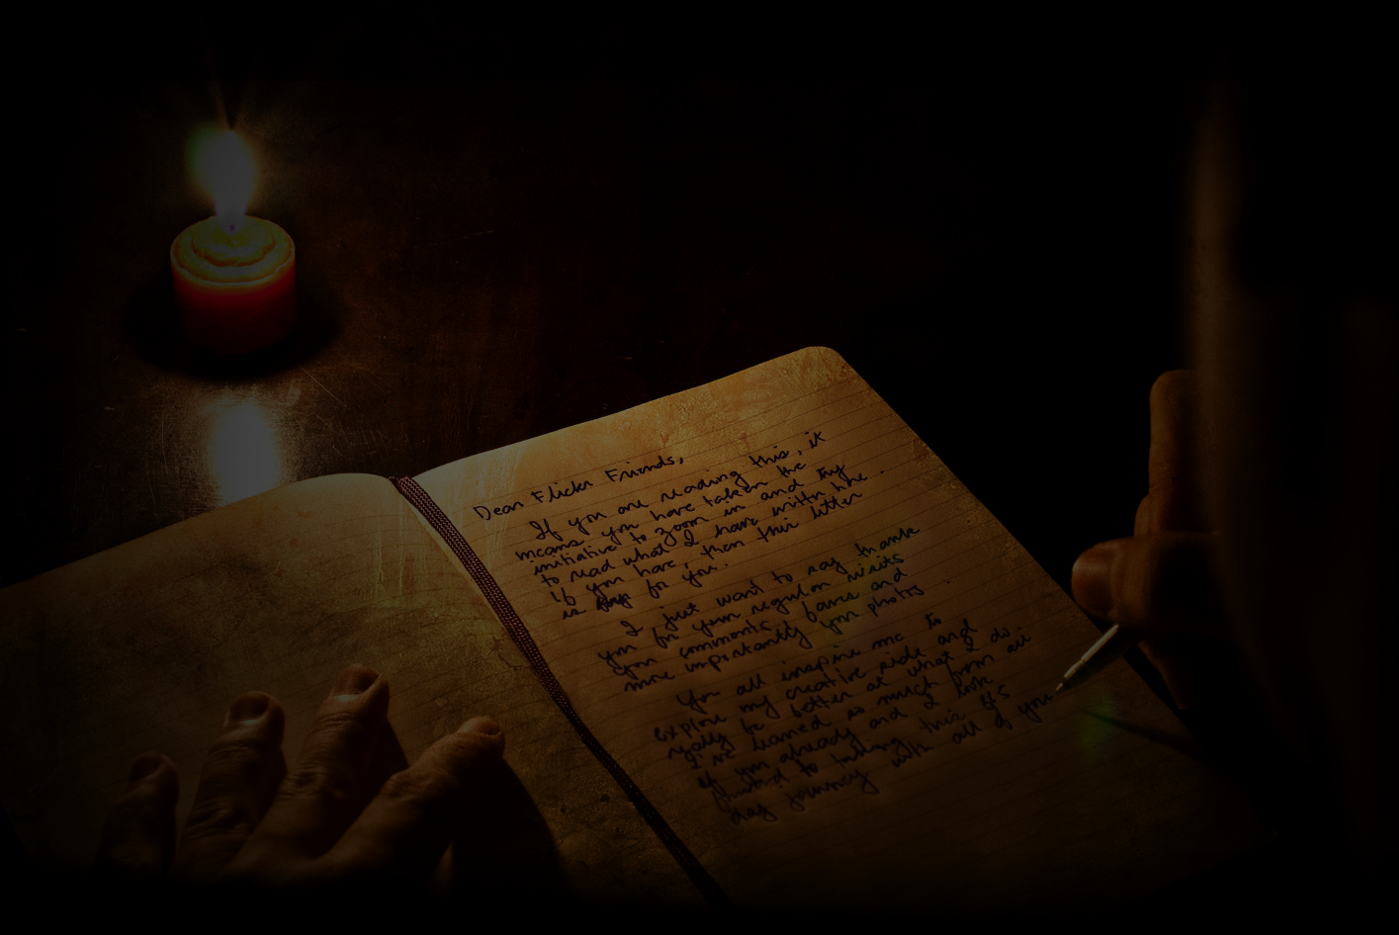 Dear Flickr Friends,
If you are reading this, it
means you have taken the
initiative to zoom in and try
to read what I have writtn here.
If you have, then this letter
is for you.
I just want to say thank
you for your regular visits
your comments, faves and
more importantly your photos
You all inspire me to
explore my creative side and
really be better at what I do.
I've learned so much from all
of you already and I look
forward to taking this 365
day journey with all of you.